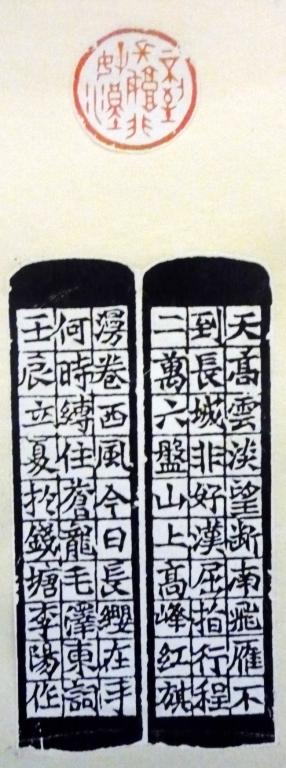 不到
長城非
好漢
天髙雲淡望断南飛雁不
到長城非好漢屈指行程
二萬六盤山上髙峰紅旗
漫卷西風今日長纓在手
何時縛住蒼龍毛澤東詞
壬辰立夏扵錢塘李陽作